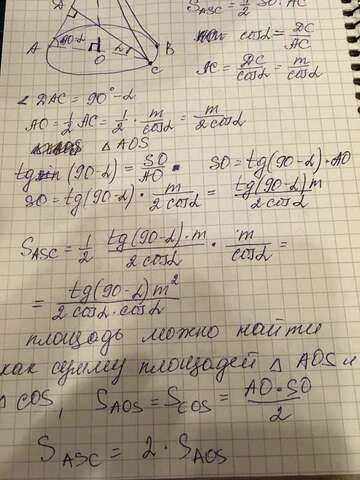 S_ASC = 1/2 SO · AC
D
A
90-α
O
α
B
C
cosα = DC/AC
AC = DC/cosα = m/cosα
∠ DAC = 90° - α
AO = 1/2 AC = 1/2 · m/cosα = m/2cosα
△ AOS
tg (90-α) = SO/AO
SO = tg(90-α) · AO
SO = tg(90-α) · m/2cosα = tg(90-α)m/2cosα
S_ASC = 1/2 tg(90-α)·m/2cosα · m/cosα =
= tg(90-α)m²/2cosα·cosα
площадь можно найти
как сумму площадей △ AOS и
△ COS, S_AOS = S_COS = AO·SO/2
S_ASC = 2 · S_AOS